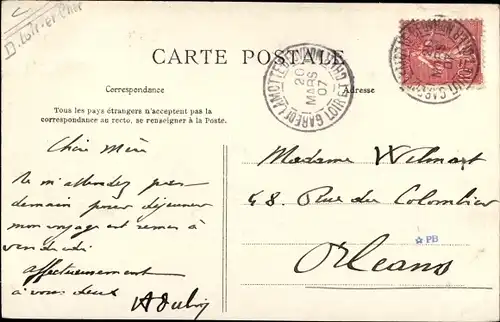 D. Loir-et-Cher
CARTE POSTALE
Correspondance
Adresse
Tous les pays étrangers n'acceptent pas la
correspondance au recto, se renseigner à la Poste.
GARE DE LAMOTTE-BEUVRON LOIR-ET-CHER
20
MARS
07
Chère Mère
Ne m'attendez pas
demain pour déjeuner
mon voyage est remis à
vendredi
affectueusement
à vous deux
Madame Wilmart
48. Rue du Colombier
PB
Orléans